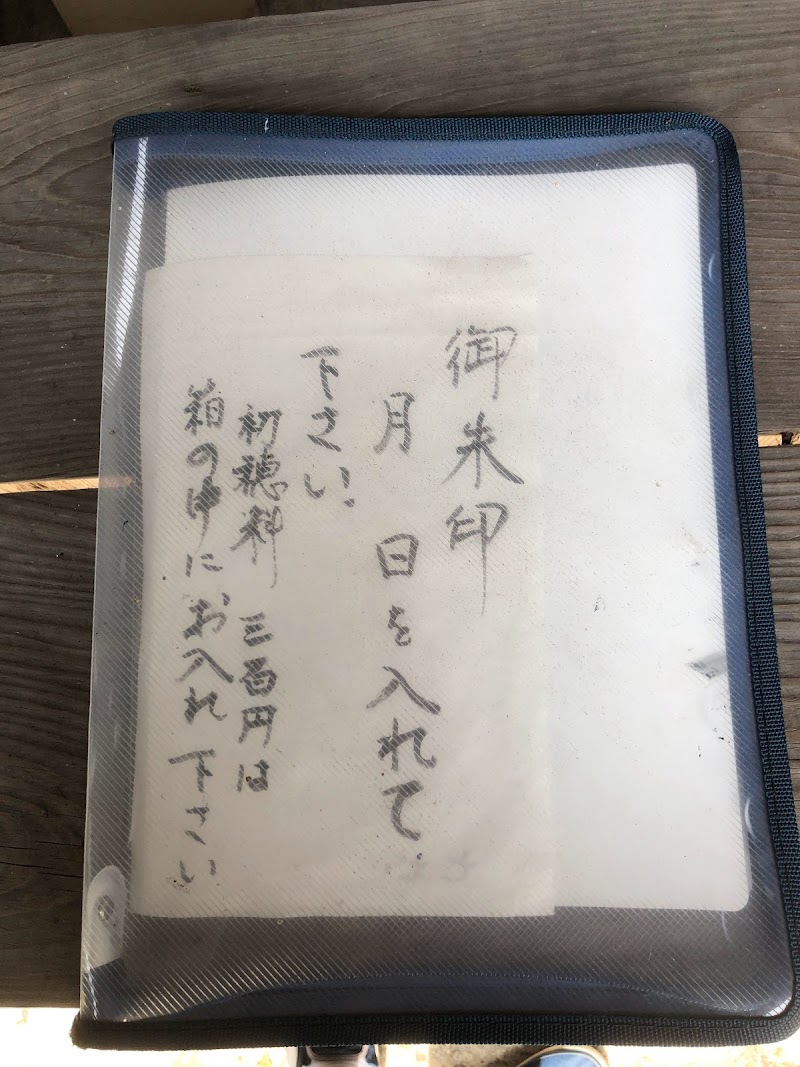 御朱印
月 日を入れて
下さい、
初穂料 三百円は
箱の中にお入れ下さい